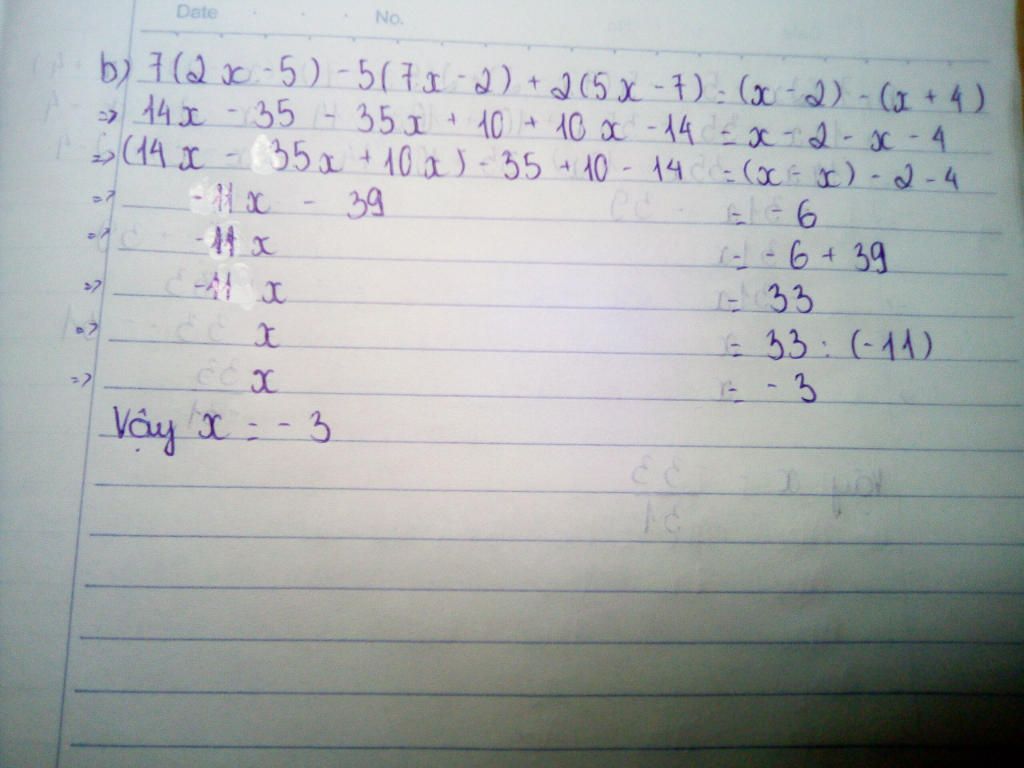 Date No.
b) 7(2x - 5) - 5(7x - 2) + 2(5x - 7) = (x - 2) - (x + 4)
=> 14x - 35 - 35x + 10 + 10x - 14 = x - 2 - x - 4
=> (14x - 35x + 10x) - 35 + 10 - 14 = (x - x) - 2 - 4
=> -11x - 39 = - 6
=> -11x = - 6 + 39
=> -11 x = 33
=> x = 33 : (-11)
=> x = - 3
Vậy x = - 3